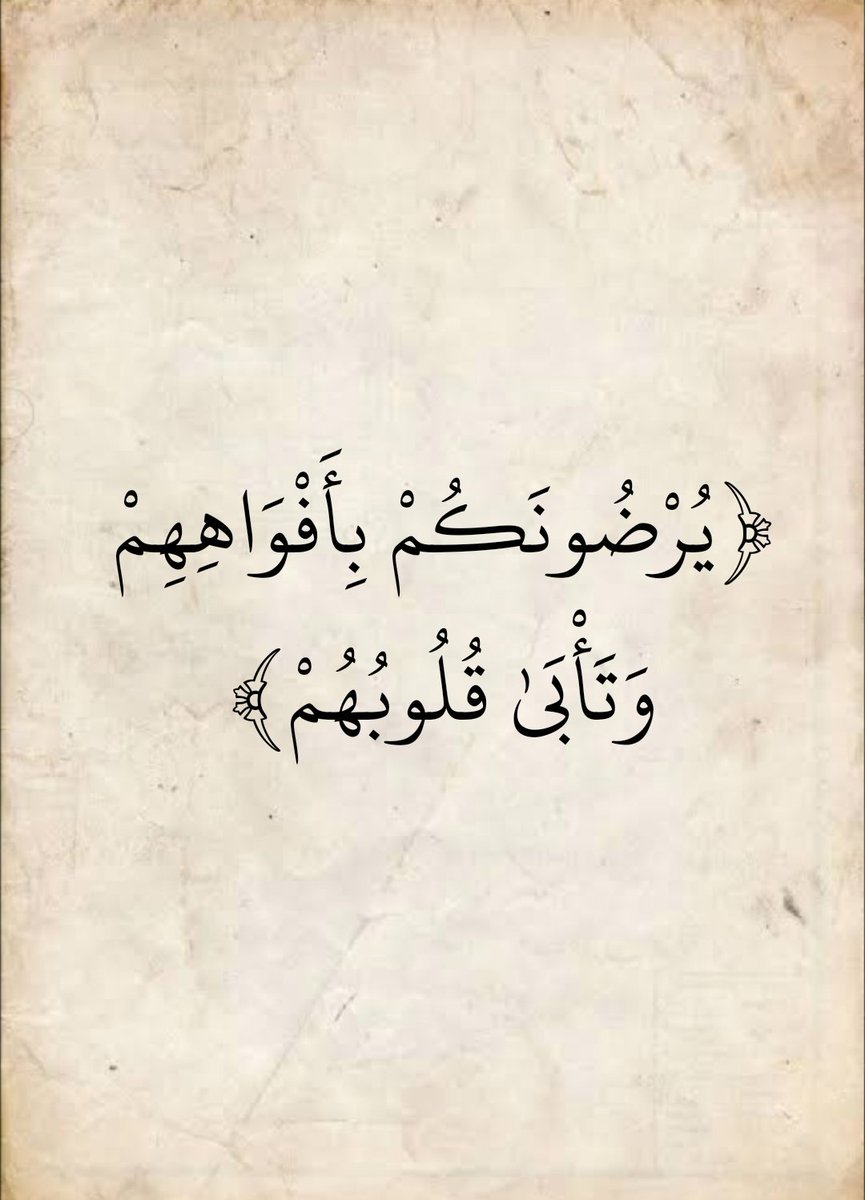 ﴿يُرْضُونَكُمْ بِأَفْوَاهِهِمْ
وَتَأْبَىٰ قُلُوبُهُمْ﴾